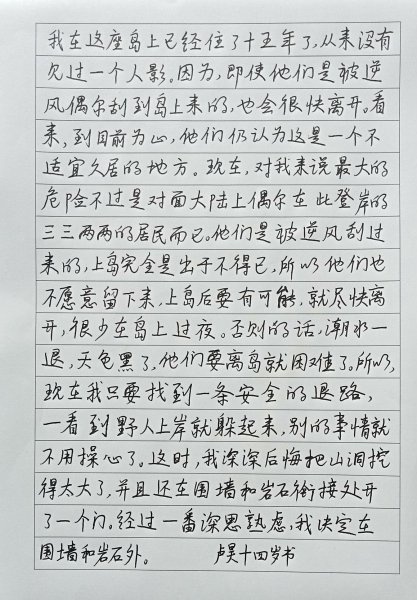 我在这座岛上已经住了十五年了,从来没有
见过一个人影。因为,即使他们是被逆
风偶尔刮到岛上来的,也会很快离开。看
来,到目前为止,他们仍认为这是一个不
适宜久居的地方。现在,对我来说最大的
危险不过是对面大陆上偶尔在此登岸的
三三两两的居民而已。他们是被逆风刮过
来的,上岛完全是出于不得已,所以他们也
不愿意留下来,上岛后要有可能,就尽快离
开,很少在岛上过夜。否则的话,潮水一
退,天色黑了,他们要离岛就困难了。所以,
现在我只要找到一条安全的退路,
一看到野人上岸就躲起来,别的事情就
不用操心了。这时,我深深后悔把山洞挖
得太大了,并且还在围墙和岩石衔接处开
了一个门。经过一番深思熟虑,我决定在
围墙和岩石外。 卢昊十四岁书